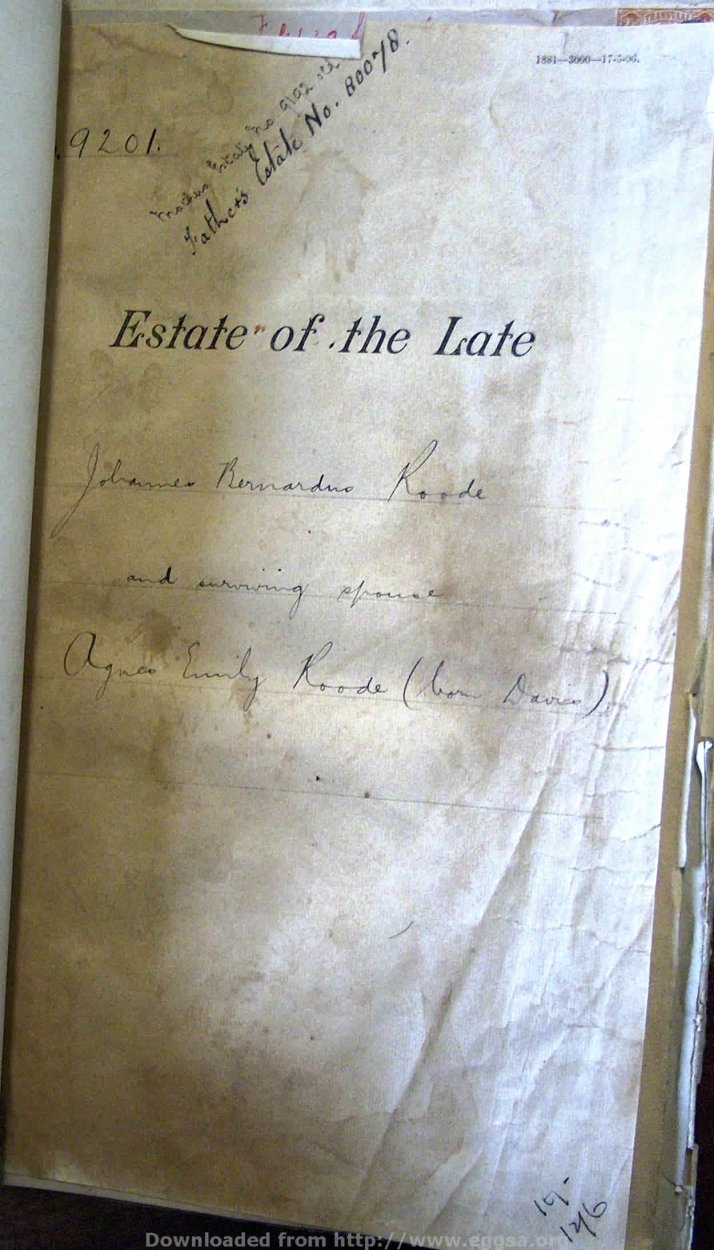 1881—3000—17-5-06.
9201.
Mother's Estate No. 9192 old
Father's Estate No. 80078.
Estate of the Late
Johannes Bernardus Roode
and surviving spouse
Agnes Emily Roode (born Davis)
12/6
Downloaded from http://www.eggsa.org